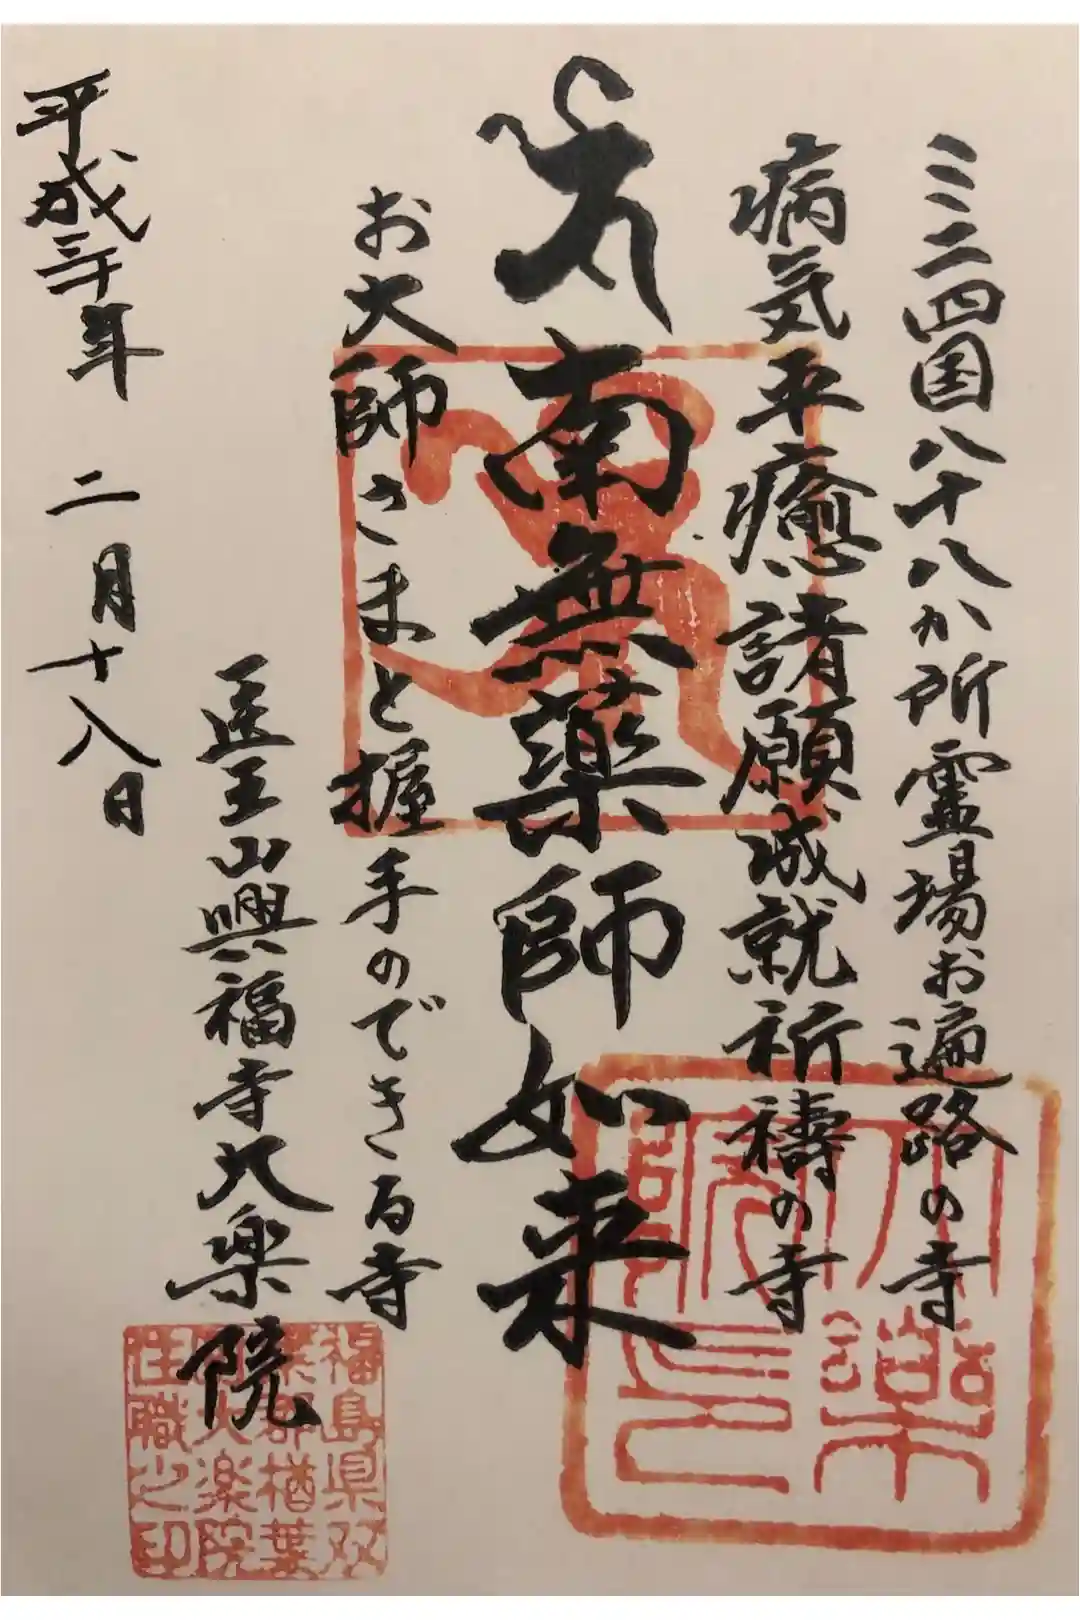 ミニ四国八十八か所霊場お遍路の寺
病気平癒諸願成就祈禱の寺
南無薬師如来
お大師さまと握手のできる寺
医王山興福寺大楽院
平成三十年 二月十八日
大楽
院印
福島県双
葉郡楢葉
町大楽院
住職之印